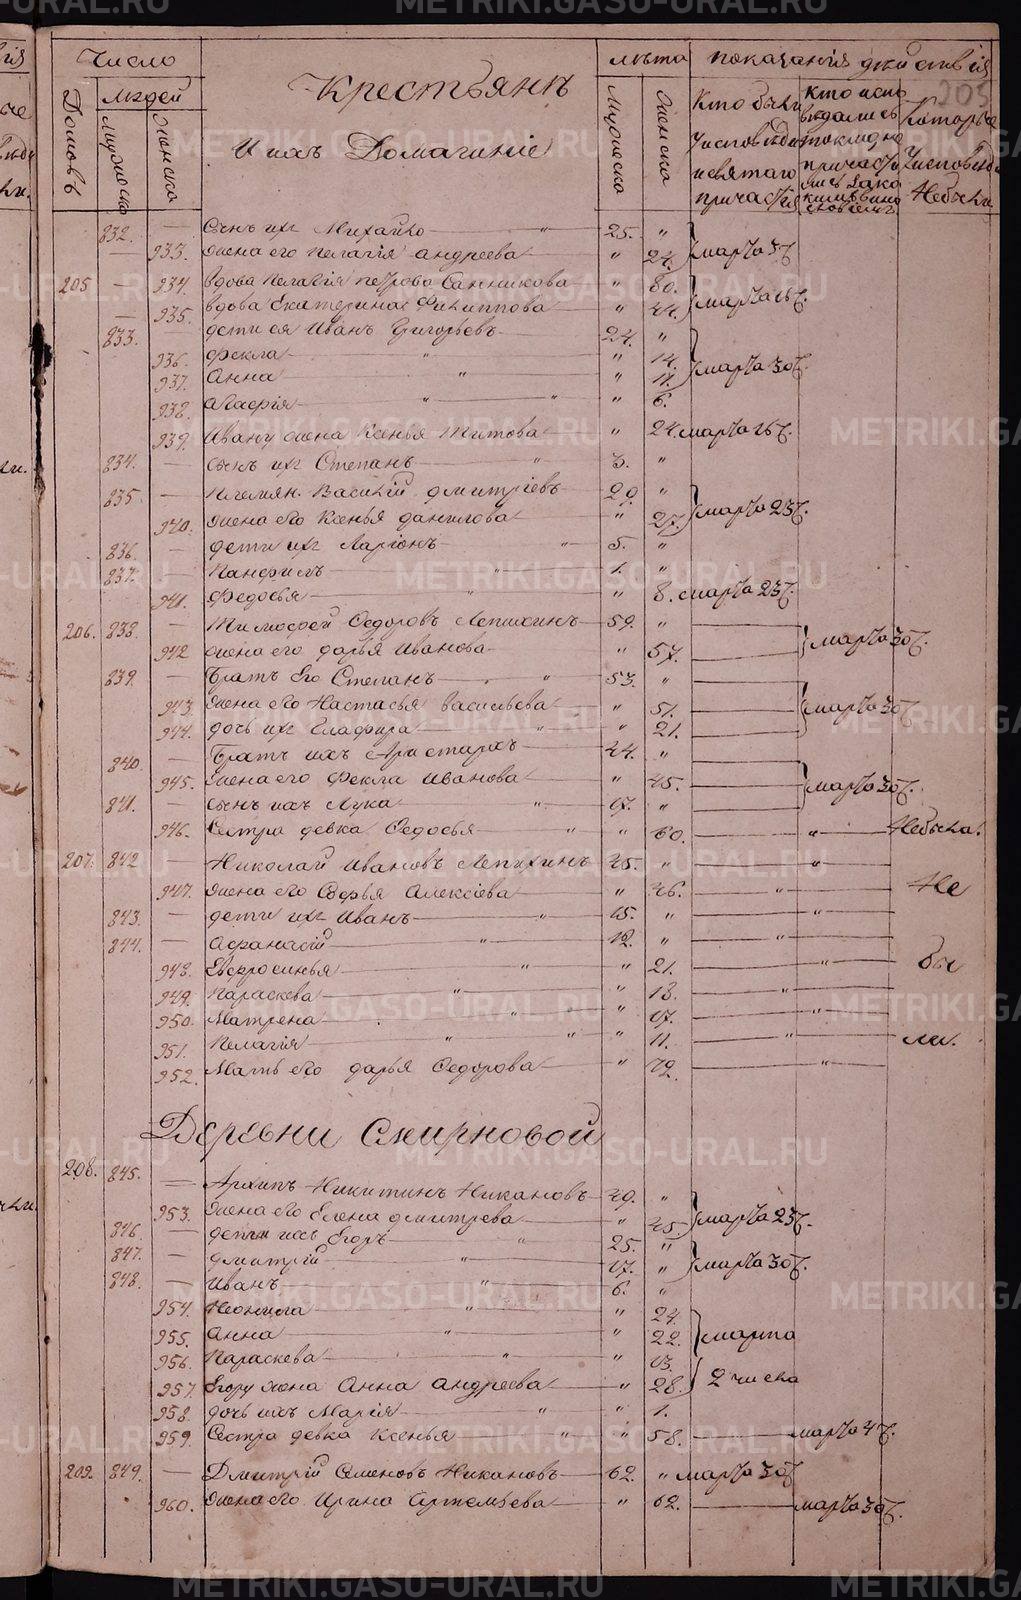 Число
Людей
Домовъ
мужеска
женска
Крестьянъ
И ихъ Домашніе
лѣта
Мужеска
женска
показанія дѣйствія
205
Кто были
у исповѣди
и святаго
причастія
Кто испо
вѣдались
токмо
причасти
Которые
у исповѣди
Небыли
832. — Сынъ ихъ Михайло — " — 25. "
— 933. жена его Пелагія андреева — " 24. марта 3 ч.
205 — 934. вдова Пелагія петрова Санникова — " 80.
— 935. вдова Екатерина Филиппова — " 44. марта 16 ч.
833. дети ея Иванъ Григорьевъ — 24. "
936. Фекла — " — " 14.
937. Анна — " — " 11. марта 30 ч.
938. Агафія — " — " — " 6.
939. Ивану жена Ксенья Титова — " 24. марта 16 ч.
834. — сынъ ихъ Степанъ — " — 3. "
835 — племян. Василій дмитріевъ — 29. "
940. жена его Ксенья данилова — " 27. марта 23 ч.
836. — дети ихъ Ларіонъ — " — 5. "
837. — Панфилъ — " — 1. "
941. Федосья — " — " 8. марта 23 ч.
206. 838. — Тимофей Федоровъ Лепихинъ — 59. "
942 жена его дарья Иванова " 57. марта 30 ч.
839. — Братъ Его Степанъ — " — 53. "
943. жена его Настасья васильева — " 51. марта 30 ч.
944. дочь ихъ Глафира — " — " 21.
840 — Братъ ихъ Аристархъ — 44. "
945. жена его Фекла иванова — " 45. марта 30 ч.
841. — сынъ ихъ Лука — " — 17. "
946. Сестра девка Федосья — " — " 60. — " — Небыла.
207. 842 — Николай Ивановъ Лепихинъ 45. " — "
947. жена его Софья Алексіева — " 46. — " — Не
843. — дети ихъ Иванъ — " — 15. " — "
844. — Афанасій — " — 12. " — "
948. Евфросинья — " — " 21. — " — бы
949. Параскева — " — " 18. — "
950. Матрена — " — " 17. — "
951. Пелагія — " — " — " 11. — " — ли.
952. Мать его дарья Федорова — " 72. — "
Деревни Смирновой
208. 845. — Архипъ Никитинъ Никановъ — 49. "
953. жена его Елена дмитрева — " 45. марта 23 ч.
846. — дети ихъ Егоръ — " — 25. "
847. — дмитрій — " — 17. " марта 30 ч.
848. — Иванъ — " — 6. "
954. Неонила — " — " 24.
955. Анна — " — " 22. марта
956. Параскева — " — " 13.
957. Егору жена Анна андреева — " 28. 2 числа
958. дочь ихъ Марія — " — " 1.
959. Сестра девка Ксенья — " — " 58. — марта 4 ч.
209. 849. — Дмитрій Семеновъ Никановъ — 62. " марта 30 ч
960. жена его Ирина Артемьева — " 62. — марта 30 ч.